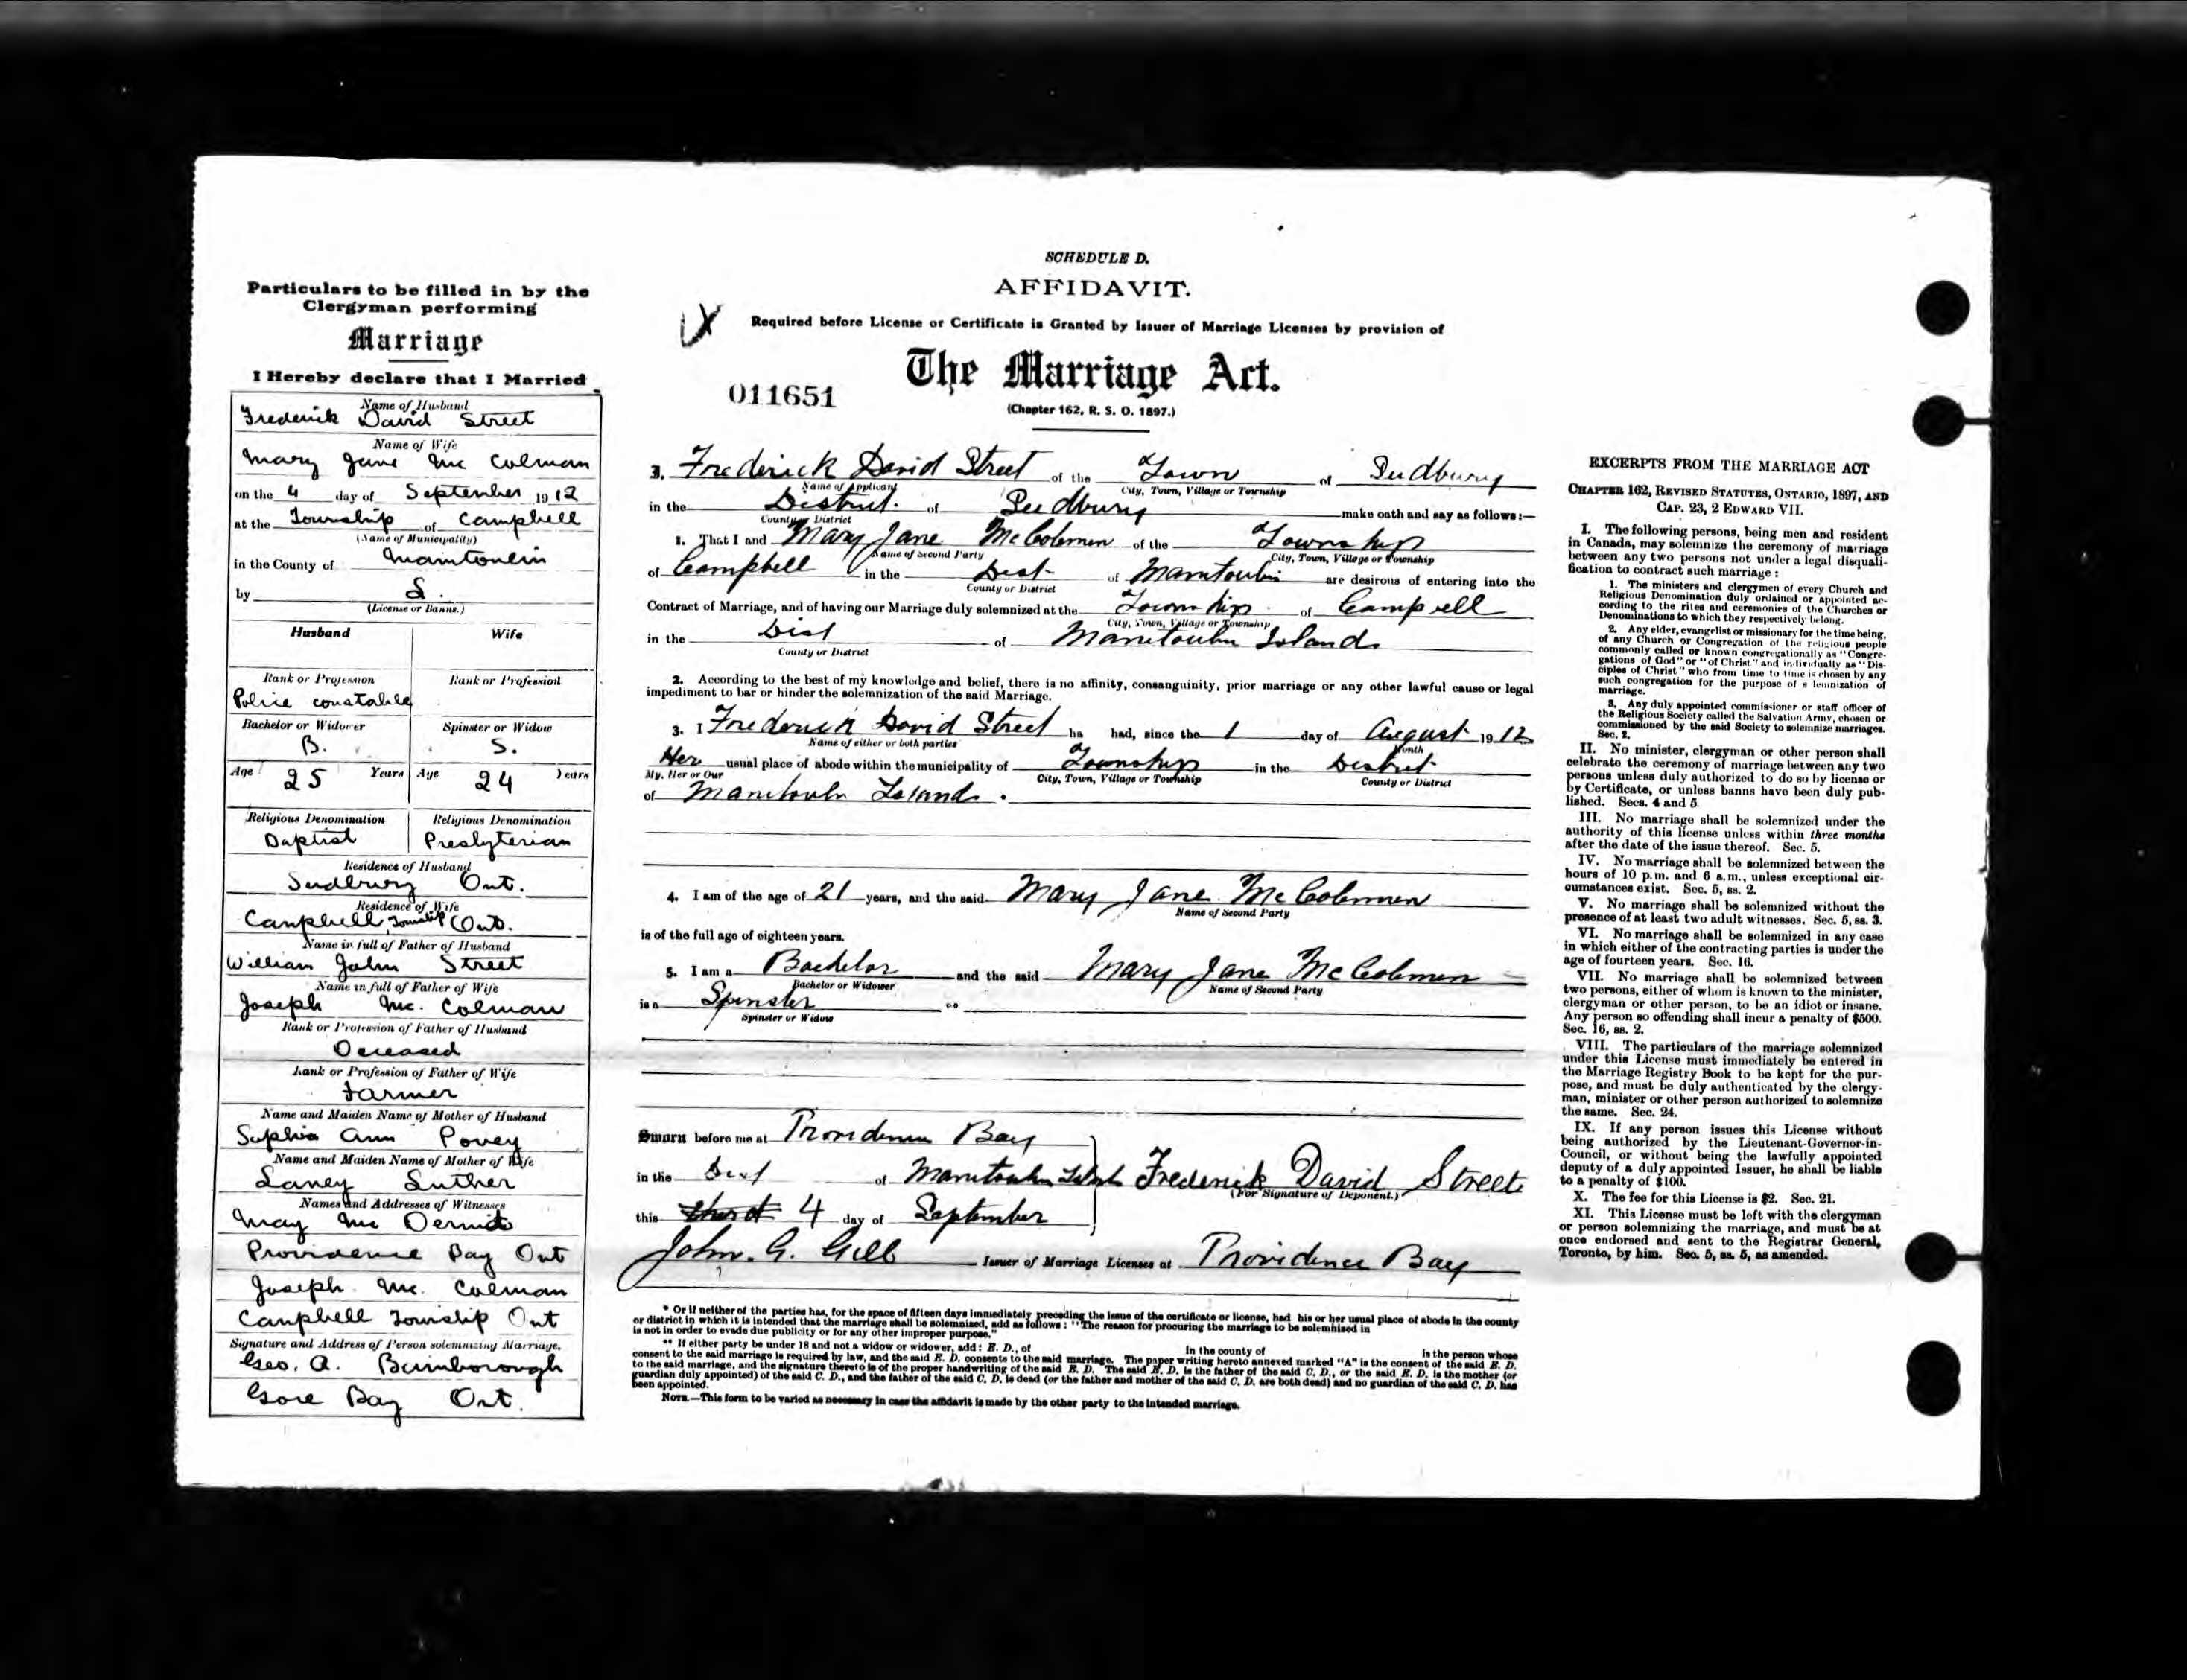 Particulars to be filled in by the
Clergyman performing
Marriage
I Hereby declare that I Married
Name of Husband
Frederick David Street
Name of Wife
Mary Jane Mc Colman
on the 4 day of September 1912
at the Township of Campbell
(Name of Municipality)
in the County of Manitoulin
by L.
(License or Banns.)
Husband Wife
Rank or Profession Rank or Profession
Police constable
Bachelor or Widower Spinster or Widow
B. S.
Age 25 Years Age 24 Years
Religious Denomination Religious Denomination
Baptist Presbyterian
Residence of Husband
Sudbury Ont.
Residence of Wife
Campbell Township Ont.
Name in full of Father of Husband
William John Street
Name in full of Father of Wife
Joseph Mc. Colman
Rank or Profession of Father of Husband
Deceased
Rank or Profession of Father of Wife
Farmer
Name and Maiden Name of Mother of Husband
Sophia Ann Povey
Name and Maiden Name of Mother of Wife
Laney Luther
Names and Addresses of Witnesses
May Mc Dermid
Providence Bay Ont
Joseph Mc. Colman
Campbell Township Ont
Signature and Address of Person solemnizing Marriage.
Geo. A. Bamborough
Gore Bay Ont.
SCHEDULE D.
AFFIDAVIT.
Required before License or Certificate is Granted by Issuer of Marriage Licenses by provision of
The Marriage Act.
011651
(Chapter 162, R. S. O. 1897.)
3. Frederick David Street of the Town of Sudbury
Name of Applicant City, Town, Village or Township
in the District of Sudbury make oath and say as follows:—
County or District
1. That I and Mary Jane McColman of the Township
Name of Second Party City, Town, Village or Township
of Campbell in the Dist of Manitoulin are desirous of entering into the
County or District
Contract of Marriage, and of having our Marriage duly solemnized at the Township of Campbell
City, Town, Village or Township
in the Dist of Manitoulin Island
County or District
2. According to the best of my knowledge and belief, there is no affinity, consanguinity, prior marriage or any other lawful cause or legal
impediment to bar or hinder the solemnization of the said Marriage.
3. I Frederick David Street ha had, since the 1 day of August 1912
Name of either or both parties Month
Her usual place of abode within the municipality of Township in the District
My, Her or Our City, Town, Village or Township County or District
of Manitoulin Island.
4. I am of the age of 21 years, and the said Mary Jane McColman
Name of Second Party
is of the full age of eighteen years.
5. I am a Bachelor and the said Mary Jane McColman
Bachelor or Widower Name of Second Party
is a Spinster
Spinster or Widow
Sworn before me at Providence Bay
in the Dist of Manitoulin Island Frederick David Street
(For Signature of Deponent.)
this 4 day of September
John. G. Gill Issuer of Marriage Licenses at Providence Bay
* Or if neither of the parties has, for the space of fifteen days immediately preceding the issue of the certificate or license, had his or her usual place of abode in the county
or district in which it is intended that the marriage shall be solemnized, add as follows: "The reason for procuring the marriage to be solemnized in
is not in order to evade due publicity or for any other improper purpose."
** If either party be under 18 and not a widow or widower, add: E. D., of in the county of is the person whose
consent to the said marriage is required by law, and the said E. D. consents to the said marriage. The paper writing hereto annexed marked "A" is the consent of the said E. D.
to the said marriage, and the signature thereto is of the proper handwriting of the said E. D. The said E. D. is the father of the said C. D., or the said E. D. is the mother (or
guardian duly appointed) of the said C. D., and the father of the said C. D. is dead (or the father and mother of the said C. D. are both dead) and no guardian of the said C. D. has
been appointed.
NOTE.—This form to be varied as necessary in case the affidavit is made by the other party to the intended marriage.
EXCERPTS FROM THE MARRIAGE ACT
CHAPTER 162, REVISED STATUTES, ONTARIO, 1897, AND
CAP. 23, 2 EDWARD VII.
I. The following persons, being men and resident
in Canada, may solemnize the ceremony of marriage
between any two persons not under a legal disquali-
fication to contract such marriage:
1. The ministers and clergymen of every Church and
Religious Denomination duly ordained or appointed ac-
cording to the rites and ceremonies of the Churches or
Denominations to which they respectively belong.
2. Any elder, evangelist or missionary for the time being,
of any Church or Congregation of the religious people
commonly called or known congregationally as "Congre-
gations of God" or "of Christ" and individually as "Dis-
ciples of Christ" who from time to time is chosen by any
such congregation for the purpose of solemnization of
marriage.
3. Any duly appointed commissioner or staff officer of
the Religious Society called the Salvation Army, chosen or
commissioned by the said Society to solemnize marriages.
Sec. 2.
II. No minister, clergyman or other person shall
celebrate the ceremony of marriage between any two
persons unless duly authorized to do so by license or
by Certificate, or unless banns have been duly pub-
lished. Secs. 4 and 5.
III. No marriage shall be solemnized under the
authority of this license unless within three months
after the date of the issue thereof. Sec. 5.
IV. No marriage shall be solemnized between the
hours of 10 p.m. and 6 a.m., unless exceptional cir-
cumstances exist. Sec. 5, ss. 2.
V. No marriage shall be solemnized without the
presence of at least two adult witnesses. Sec. 5, ss. 3.
VI. No marriage shall be solemnized in any case
in which either of the contracting parties is under the
age of fourteen years. Sec. 16.
VII. No marriage shall be solemnized between
two persons, either of whom is known to the minister,
clergyman or other person, to be an idiot or insane.
Any person so offending shall incur a penalty of $500.
Sec. 16, ss. 2.
VIII. The particulars of the marriage solemnized
under this License must immediately be entered in
the Marriage Registry Book to be kept for the pur-
pose, and must be duly authenticated by the clergy-
man, minister or other person authorized to solemnize
the same. Sec. 24.
IX. If any person issues this License without
being authorized by the Lieutenant-Governor-in-
Council, or without being the lawfully appointed
deputy of a duly appointed Issuer, he shall be liable
to a penalty of $100.
X. The fee for this License is $2. Sec. 21.
XI. This License must be left with the clergyman
or person solemnizing the marriage, and must be at
once endorsed and sent to the Registrar General,
Toronto, by him. Sec. 5, ss. 5, as amended.